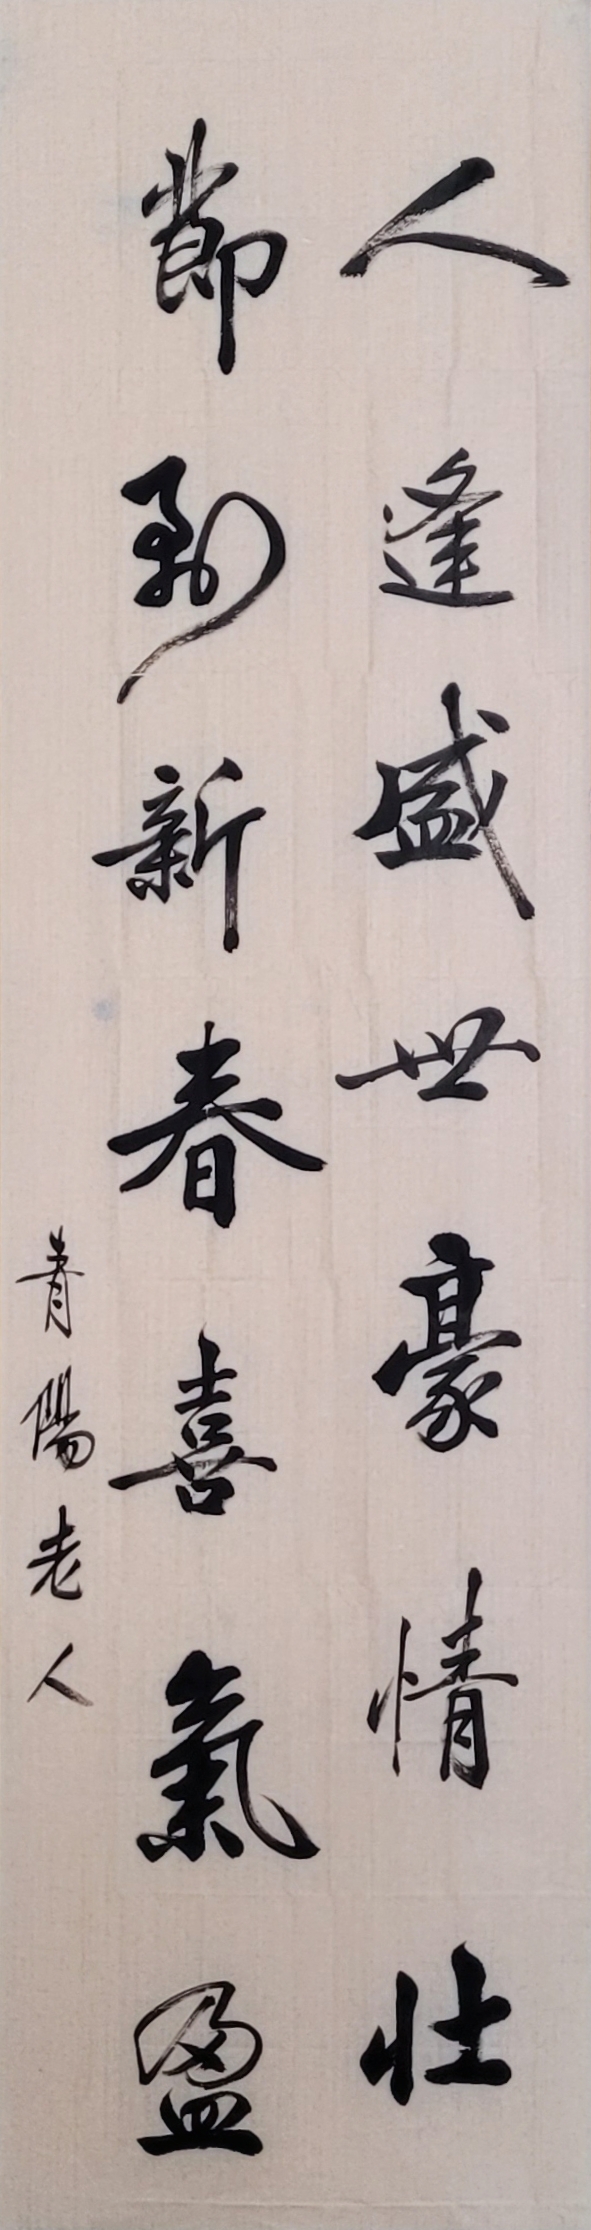 人逢盛世豪情壮
節到新春喜氣盈
青陽老人